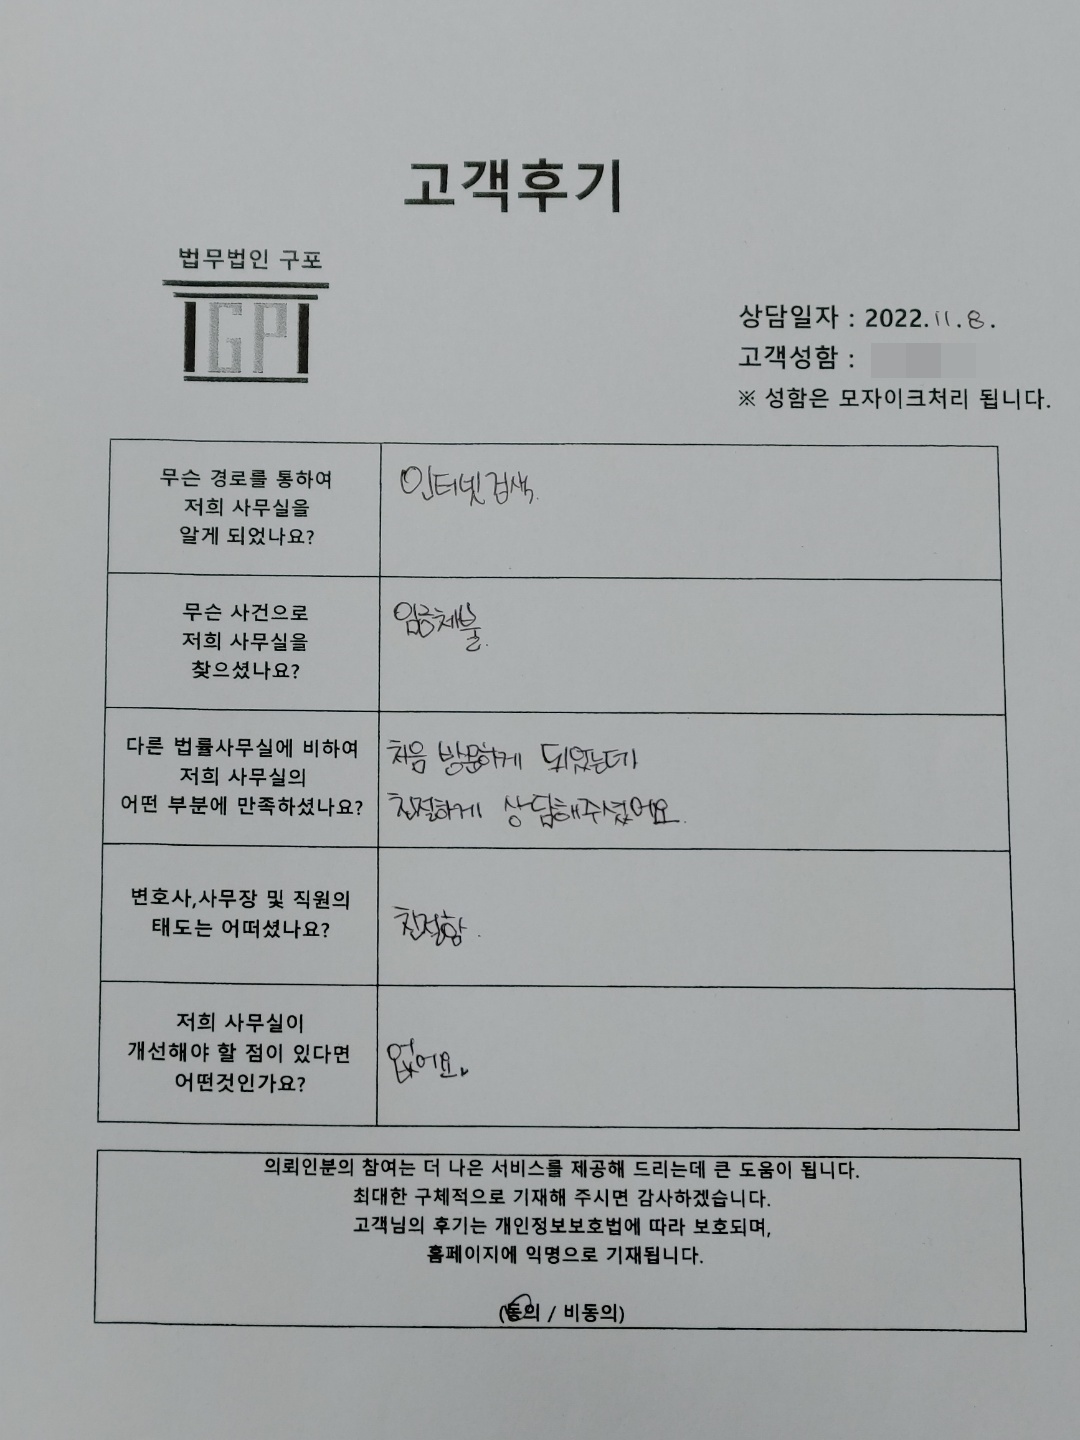 고객후기
법무법인 구포
GP
상담일자 : 2022.11.8.
고객성함 :
※ 성함은 모자이크처리 됩니다.
무슨 경로를 통하여
저희 사무실을
알게 되었나요?
인터넷 검색.
무슨 사건으로
저희 사무실을
찾으셨나요?
임금체불.
다른 법률사무실에 비하여
저희 사무실의
어떤 부분에 만족하셨나요?
처음 방문하게 되었는데
친절하게 상담해주셨어요.
변호사,사무장 및 직원의
태도는 어떠셨나요?
친절함.
저희 사무실이
개선해야 할 점이 있다면
어떤것인가요?
없어요.
의뢰인분의 참여는 더 나은 서비스를 제공해 드리는데 큰 도움이 됩니다.
최대한 구체적으로 기재해 주시면 감사하겠습니다.
고객님의 후기는 개인정보보호법에 따라 보호되며,
홈페이지에 익명으로 기재됩니다.
(동의 / 비동의)